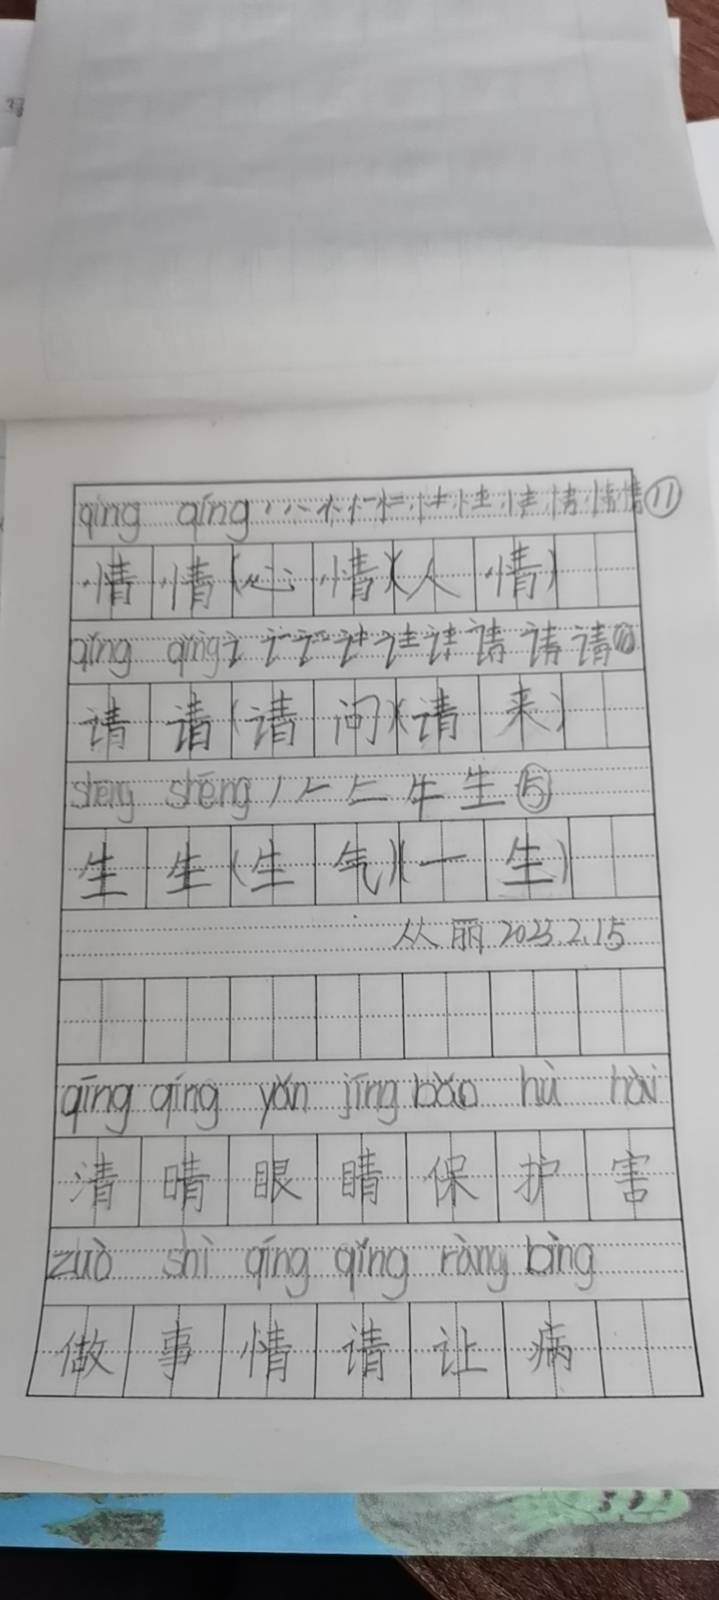 qíng qíng 丶 丷 忄 忄 忄 忄 忄 忄 情 情 情 ⑪
情 情 (心 情)(人 情)
qǐng qǐng 讠 讠 请 请 请 ⑩
请 请 (请 问)(请 来)
shēng shēng 丿 𠂉 牛 生 ⑤
生 生 (生 气)(一 生)
丛丽 2023.2.15
qīng qíng yǎn jīng bǎo hù hài
清 晴 眼 睛 保 护 害
zuò shì qíng qǐng ràng bìng
做 事 情 请 让 病